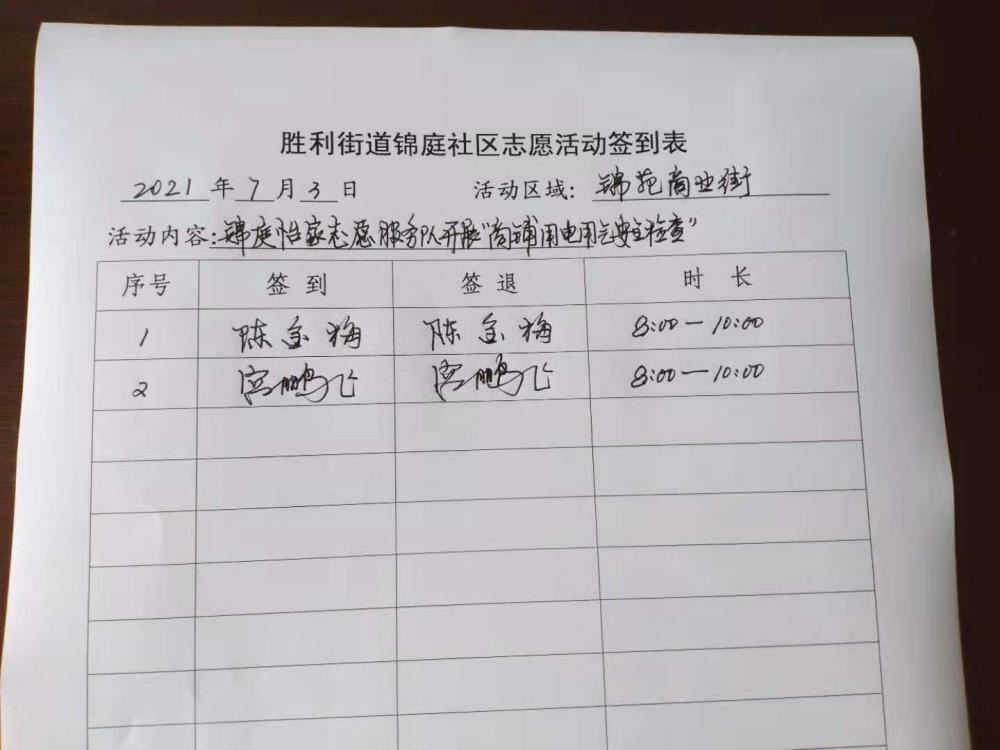 胜利街道锦庭社区志愿活动签到表
2021年7月3日 活动区域：锦苑商业街
活动内容：锦庭怡家志愿服务队开展“商铺用电用气安全检查”
序号 签到 签退 时长
1 陈金梅 陈金梅 8:00—10:00
2 宫鹏飞 宫鹏飞 8:00—10:00